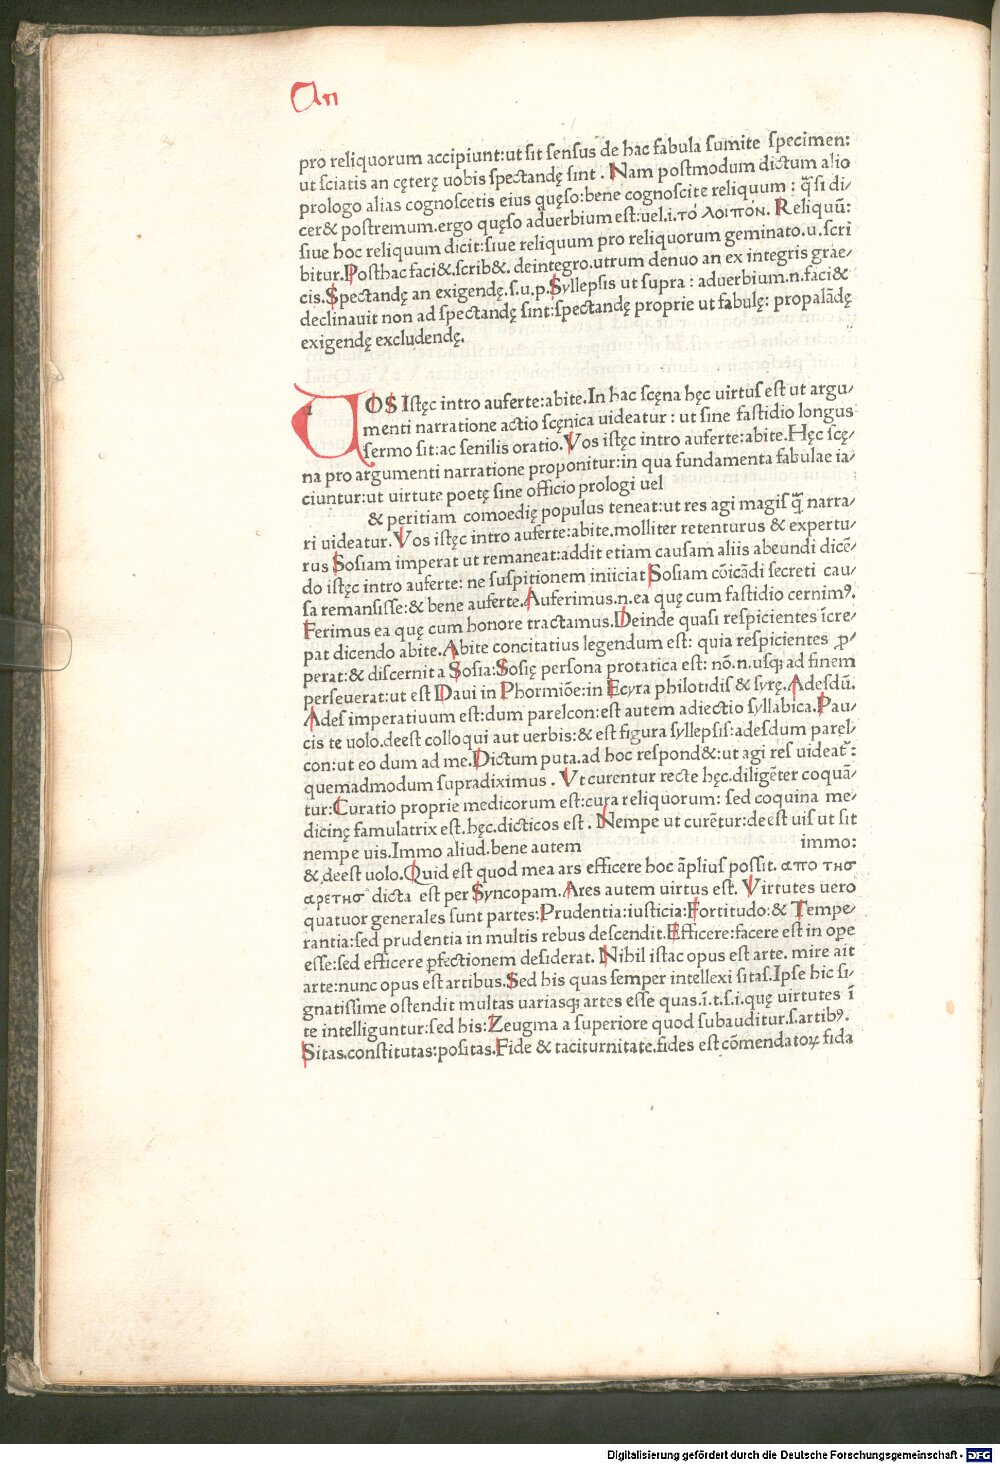 An
pro reliquorum accipiunt:ut sit sensus de hac fabula sumite specimen:
ut sciatis an cęterę uobis spectandę sint . Nam postmodum dictum alio
prologo alias cognoscetis eius quęso:bene cognoscite reliquum : q̃si di/
cer& postremum.ergo quęso aduerbium est:uel.i.τό λοιπόν. Reliquũ:
siue hoc reliquum dicit:siue reliquum pro reliquorum geminato.u.scri
bitur.Posthac faci&.scrib&. deintegro.utrum denuo an ex integris grae/
cis.Spectandę an exigendę.s.u.p.Syllepsis ut supra : aduerbium.n.faci&
declinauit non ad spectandę sint:spectandę proprie ut fabulę: propalãdę
exigendę excludendę.
VOS Istęc intro auferte:abite.In hac scęna hęc uirtus est ut argu/
menti narratione actio scęnica uideatur : ut sine fastidio longus
sermo sit:ac senilis oratio.Vos istęc intro auferte:abite.Hęc scę/
na pro argumenti narratione proponitur:in qua fundamenta fabulae ia/
ciuntur:ut uirtute poetę sine officio prologi uel
& peritiam comoedię populus teneat:ut res agi magis q̃ narra/
ri uideatur.Vos istęc intro auferte:abite.molliter retenturus & expertu/
rus Sosiam imperat ut remaneat:addit etiam causam aliis abeundi dicẽ/
do istęc intro auferte: ne suspitionem iniiciat Sosiam cõicãdi secreti cau/
sa remansisse:& bene auferte.Auferimus.n.ea quę cum fastidio cernimꝰ.
Ferimus ea quę cum honore tractamus.Deinde quasi respicientes ĩcre/
pat dicendo abite.Abite concitatius legendum est: quia respicientes ꝓ/
perat:& discernit a Sosia:Sosię persona protatica est: nõ.n.usq; ad finem
perseuerat:ut est Daui in Phormiõe:in Ecyra philotidis & syrę.Adesdũ.
Ades imperatiuum est:dum parelcon:est autem adiectio syllabica.Pau/
cis te uolo.deest colloqui aut uerbis:& est figura syllepsis:adesdum parel/
con:ut eo dum ad me.Dictum puta.ad hoc respond&:ut agi res uideat᷑:
quemadmodum supradiximus . Vt curentur recte hęc.diligẽter coquã/
tur:Curatio proprie medicorum est:cura reliquorum: sed coquina me/
dicinę famulatrix est.hęc.dicticos est . Nempe ut curẽtur:deest uis ut sit
nempe uis.Immo aliud.bene autem immo:
& deest uolo.Quid est quod mea ars efficere hoc ãplius possit. απο τησ
αρετησ dicta est per Syncopam.Ares autem uirtus est. Virtutes uero
quatuor generales sunt partes:Prudentia:iusticia:Fortitudo:& Tempe/
rantia:sed prudentia in multis rebus descendit.Efficere:facere est in ope
esse:sed efficere ꝑfectionem desiderat. Nihil istac opus est arte. mire ait
arte:nunc opus est artibus.Sed his quas semper intellexi sitas.Ipse hic si/
gnatissime ostendit multas uariasq; artes esse quas.ĩ.t.s.i.quę uirtutes ĩ
te intelliguntur:sed his:Zeugma a superiore quod subauditur.s.artibꝰ.
Sitas.constitutas:positas.Fide & taciturnitate.fides est cõmendatoꝝ fida
Digitalisierung gefördert durch die Deutsche Forschungsgemeinschaft - DFG